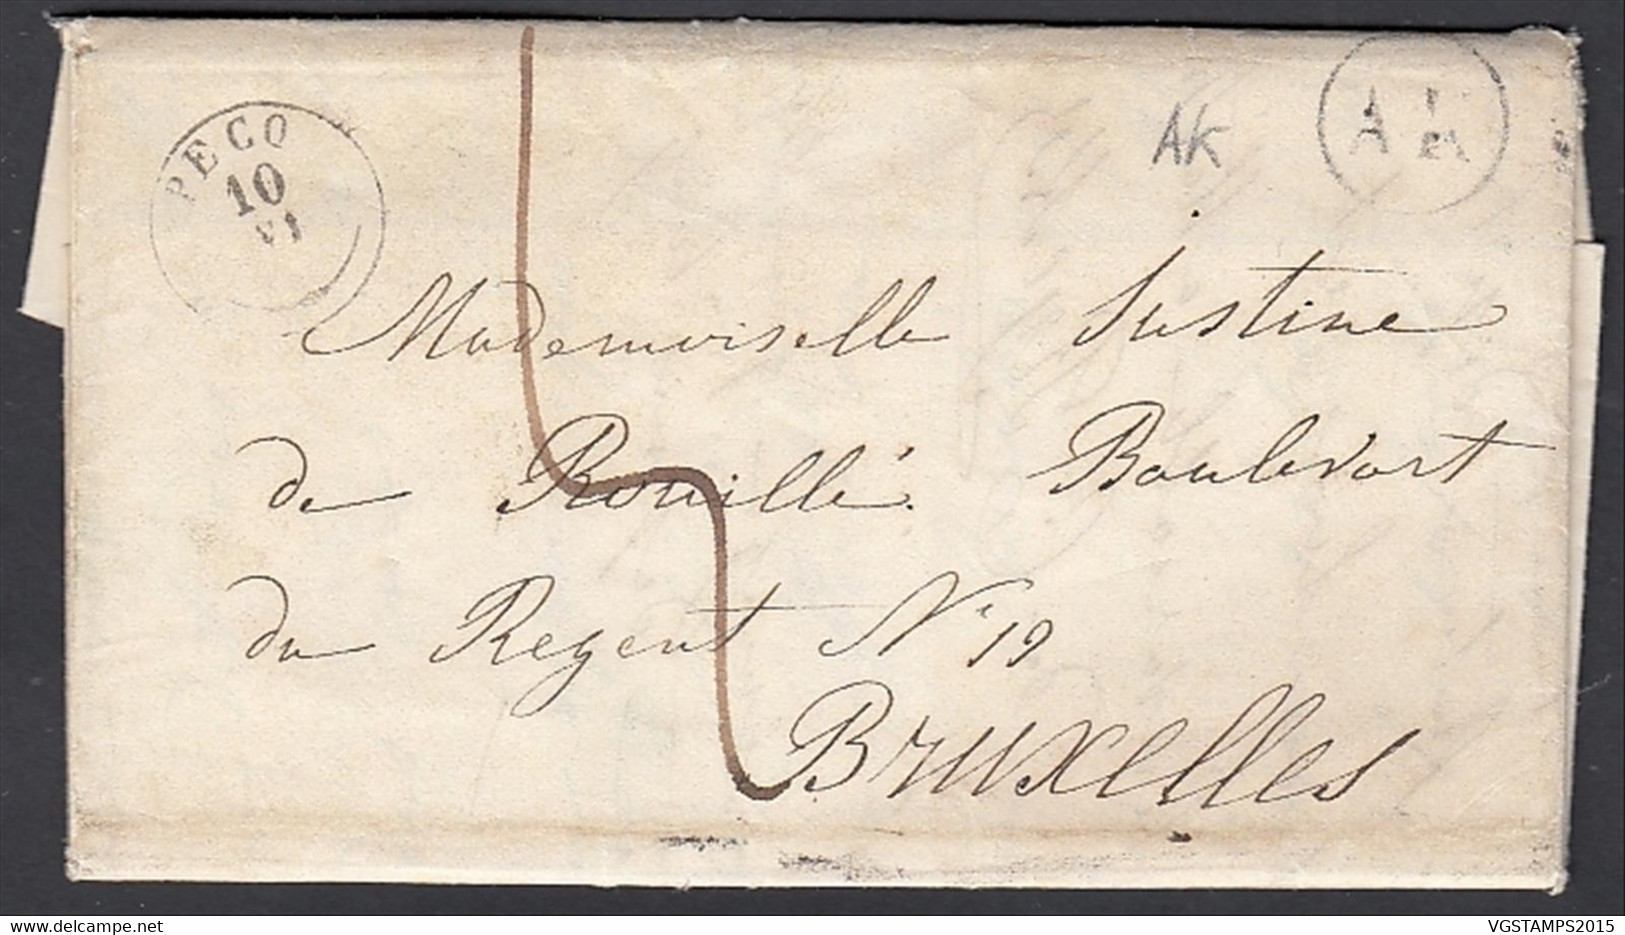 PECQ
10
VI
AK
A K
Mademoiselle Justine
de Rouillé Boulevart
du Regent N° 19
Bruxelles
VGSTAMPS2015